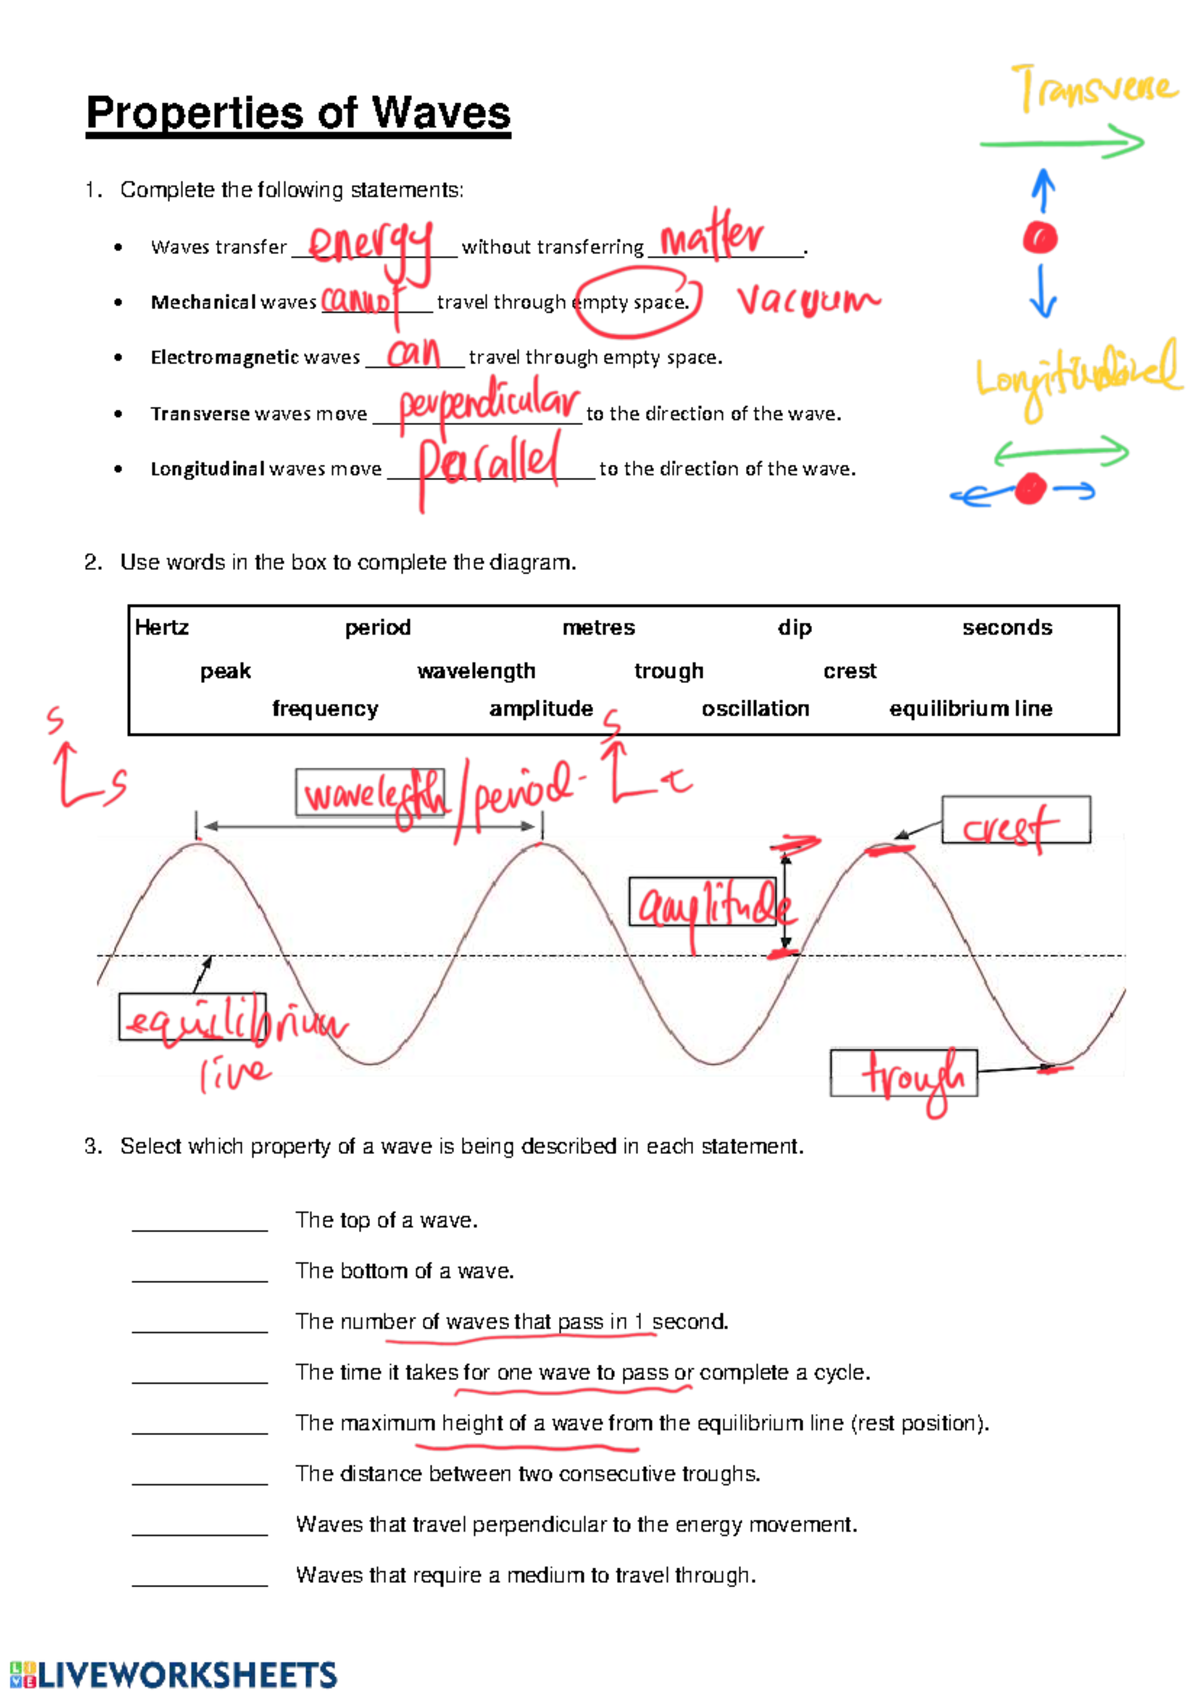 Transverse
Properties of Waves
1. Complete the following statements:
• Waves transfer energy without transferring matter.
• Mechanical waves cannot travel through empty space. vacuum
• Electromagnetic waves can travel through empty space.
Longitudinal
• Transverse waves move perpendicular to the direction of the wave.
• Longitudinal waves move parallel to the direction of the wave.
2. Use words in the box to complete the diagram.
Hertz period metres dip seconds
peak wavelength trough crest
frequency amplitude oscillation equilibrium line
s s
s wavelegth/period - t
crest
amplitude
equilibrium
line
trough
3. Select which property of a wave is being described in each statement.
____________ The top of a wave.
____________ The bottom of a wave.
____________ The number of waves that pass in 1 second.
____________ The time it takes for one wave to pass or complete a cycle.
____________ The maximum height of a wave from the equilibrium line (rest position).
____________ The distance between two consecutive troughs.
____________ Waves that travel perpendicular to the energy movement.
____________ Waves that require a medium to travel through.
LIVE LIVEWORKSHEETS